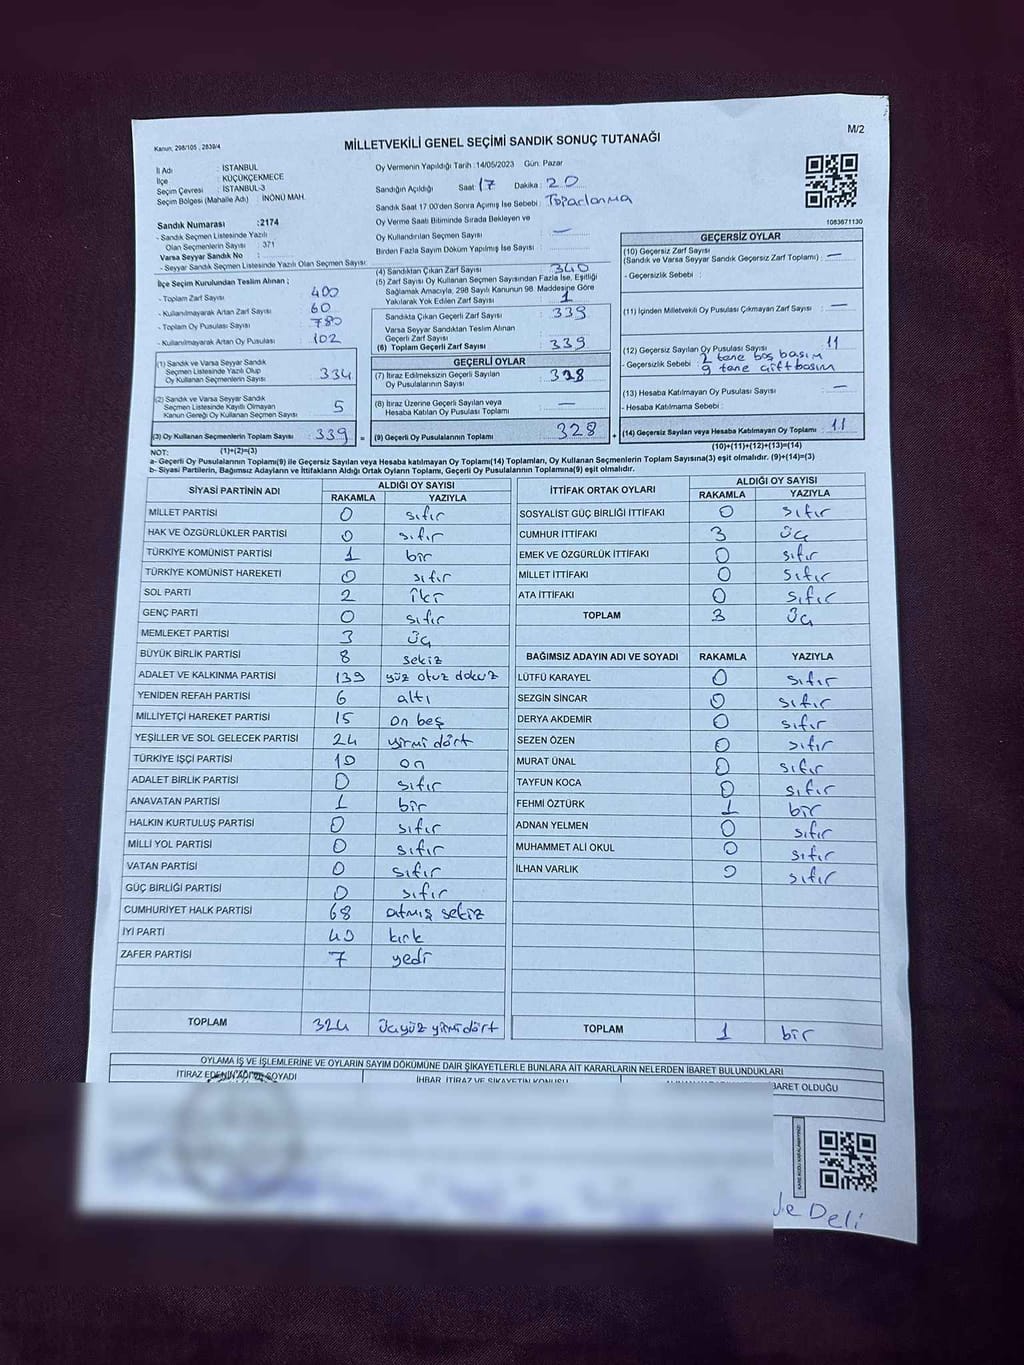 Kanun: 298/105 , 2839/4
MİLLETVEKİLİ GENEL SEÇİMİ SANDIK SONUÇ TUTANAĞI
M/2
İl Adı : İSTANBUL
İlçe : KÜÇÜKÇEKMECE
Seçim Çevresi : İSTANBUL-3
Seçim Bölgesi (Mahalle Adı) : İNÖNÜ MAH.
Sandık Numarası :2174
- Sandık Seçmen Listesinde Yazılı
Olan Seçmenlerin Sayısı : 371
Varsa Seyyar Sandık No :
- Seyyar Sandık Seçmen Listesinde Yazılı Olan Seçmen Sayısı:
İlçe Seçim Kurulundan Teslim Alınan ;
- Toplam Zarf Sayısı : 400
- Kullanılmayarak Artan Zarf Sayısı : 60
- Toplam Oy Pusulası Sayısı : 780
- Kullanılmayarak Artan Oy Pusulası : 102
(1) Sandık ve Varsa Seyyar Sandık
Seçmen Listesinde Yazılı Olup
Oy Kullanan Seçmenlerin Sayısı : 334
(2) Sandık ve Varsa Seyyar Sandık
Seçmen Listesinde Kayıtlı Olmayan
Kanun Gereği Oy Kullanan Seçmen Sayısı : 5
(3) Oy Kullanan Seçmenlerin Toplam Sayısı : 339 =
(1)+(2)=(3)
Oy Vermenin Yapıldığı Tarih :14/05/2023 Gün: Pazar
Sandığın Açıldığı Saat: 17 Dakika: 20
Sandık Saat 17.00'den Sonra Açılmış İse Sebebi : Toparlanma
Oy Verme Saati Bitiminde Sırada Bekleyen ve
Oy Kullandırılan Seçmen Sayısı : —
Birden Fazla Sayım Döküm Yapılmış İse Sayısı :
(4) Sandıktan Çıkan Zarf Sayısı : 340
(5) Zarf Sayısı Oy Kullanan Seçmen Sayısından Fazla İse, Eşitliği
Sağlamak Amacıyla, 298 Sayılı Kanunun 98. Maddesine Göre
Yakılarak Yok Edilen Zarf Sayısı : 1
Sandıkta Çıkan Geçerli Zarf Sayısı : 339
Varsa Seyyar Sandıktan Teslim Alınan
Geçerli Zarf Sayısı :
(6) Toplam Geçerli Zarf Sayısı : 339
GEÇERLİ OYLAR
(7) İtiraz Edilmeksizin Geçerli Sayılan
Oy Pusulalarının Sayısı : 328
(8) İtiraz Üzerine Geçerli Sayılan veya
Hesaba Katılan Oy Pusulası Toplamı : —
(9) Geçerli Oy Pusulalarının Toplamı : 328 +
1083671130
GEÇERSİZ OYLAR
(10) Geçersiz Zarf Sayısı
(Sandık ve Varsa Seyyar Sandık Geçersiz Zarf Toplamı) : —
- Geçersizlik Sebebi :
(11) İçinden Milletvekili Oy Pusulası Çıkmayan Zarf Sayısı : —
(12) Geçersiz Sayılan Oy Pusulası Sayısı : 11
- Geçersizlik Sebebi : 2 tane boş basım
9 tane çift basım
(13) Hesaba Katılmayan Oy Pusulası Sayısı : —
- Hesaba Katılmama Sebebi :
(14) Geçersiz Sayılan veya Hesaba Katılmayan Oy Toplamı : 11
(10)+(11)+(12)+(13)=(14)
NOT:
a- Geçerli Oy Pusulalarının Toplamı(9) ile Geçersiz Sayılan veya Hesaba katılmayan Oy Toplamı(14) Toplamları, Oy Kullanan Seçmenlerin Toplam Sayısına(3) eşit olmalıdır. (9)+(14)=(3)
b- Siyasi Partilerin, Bağımsız Adayların ve İttifakların Aldığı Ortak Oyların Toplamı, Geçerli Oy Pusulalarının Toplamına(9) eşit olmalıdır.
SİYASİ PARTİNİN ADI ALDIĞI OY SAYISI
RAKAMLA YAZIYLA
MİLLET PARTİSİ 0 sıfır
HAK VE ÖZGÜRLÜKLER PARTİSİ 0 sıfır
TÜRKİYE KOMÜNİST PARTİSİ 1 bir
TÜRKİYE KOMÜNİST HAREKETİ 0 sıfır
SOL PARTİ 2 iki
GENÇ PARTİ 0 sıfır
MEMLEKET PARTİSİ 3 üç
BÜYÜK BİRLİK PARTİSİ 8 sekiz
ADALET VE KALKINMA PARTİSİ 139 yüz otuz dokuz
YENİDEN REFAH PARTİSİ 6 altı
MİLLİYETÇİ HAREKET PARTİSİ 15 on beş
YEŞİLLER VE SOL GELECEK PARTİSİ 24 yirmi dört
TÜRKİYE İŞÇİ PARTİSİ 10 on
ADALET BİRLİK PARTİSİ 0 sıfır
ANAVATAN PARTİSİ 1 bir
HALKIN KURTULUŞ PARTİSİ 0 sıfır
MİLLİ YOL PARTİSİ 0 sıfır
VATAN PARTİSİ 0 sıfır
GÜÇ BİRLİĞİ PARTİSİ 0 sıfır
CUMHURİYET HALK PARTİSİ 68 atmış sekiz
İYİ PARTİ 40 kırk
ZAFER PARTİSİ 7 yedi
TOPLAM 324 üçyüz yirmi dört
İTTİFAK ORTAK OYLARI ALDIĞI OY SAYISI
RAKAMLA YAZIYLA
SOSYALİST GÜÇ BİRLİĞİ İTTİFAKI 0 sıfır
CUMHUR İTTİFAKI 3 üç
EMEK VE ÖZGÜRLÜK İTTİFAKI 0 sıfır
MİLLET İTTİFAKI 0 sıfır
ATA İTTİFAKI 0 sıfır
TOPLAM 3 üç
BAĞIMSIZ ADAYIN ADI VE SOYADI RAKAMLA YAZIYLA
LÜTFÜ KARAYEL 0 sıfır
SEZGİN SİNCAR 0 sıfır
DERYA AKDEMİR 0 sıfır
SEZEN ÖZEN 0 sıfır
MURAT ÜNAL 0 sıfır
TAYFUN KOCA 0 sıfır
FEHMİ ÖZTÜRK 1 bir
ADNAN YELMEN 0 sıfır
MUHAMMET ALİ OKUL 0 sıfır
İLHAN VARLIK 0 sıfır
TOPLAM 1 bir
OYLAMA İŞ VE İŞLEMLERİNE VE OYLARIN SAYIM DÖKÜMÜNE DAİR ŞİKAYETLERLE BUNLARA AİT KARARLARIN NELERDEN İBARET BULUNDUKLARI
İTİRAZ EDENİN ADI VE SOYADI İHBAR, İTİRAZ VE ŞİKAYETİN KONUSU İBARET OLDUĞU
Deli